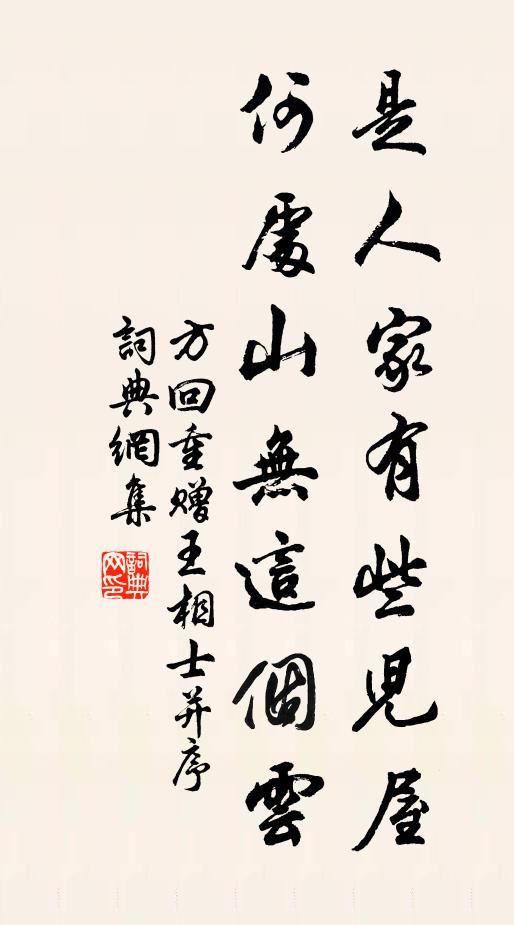 是人家有些兒屋
何處山無這個雲
方回重贈王相士并序
詞典網集
詞典網印